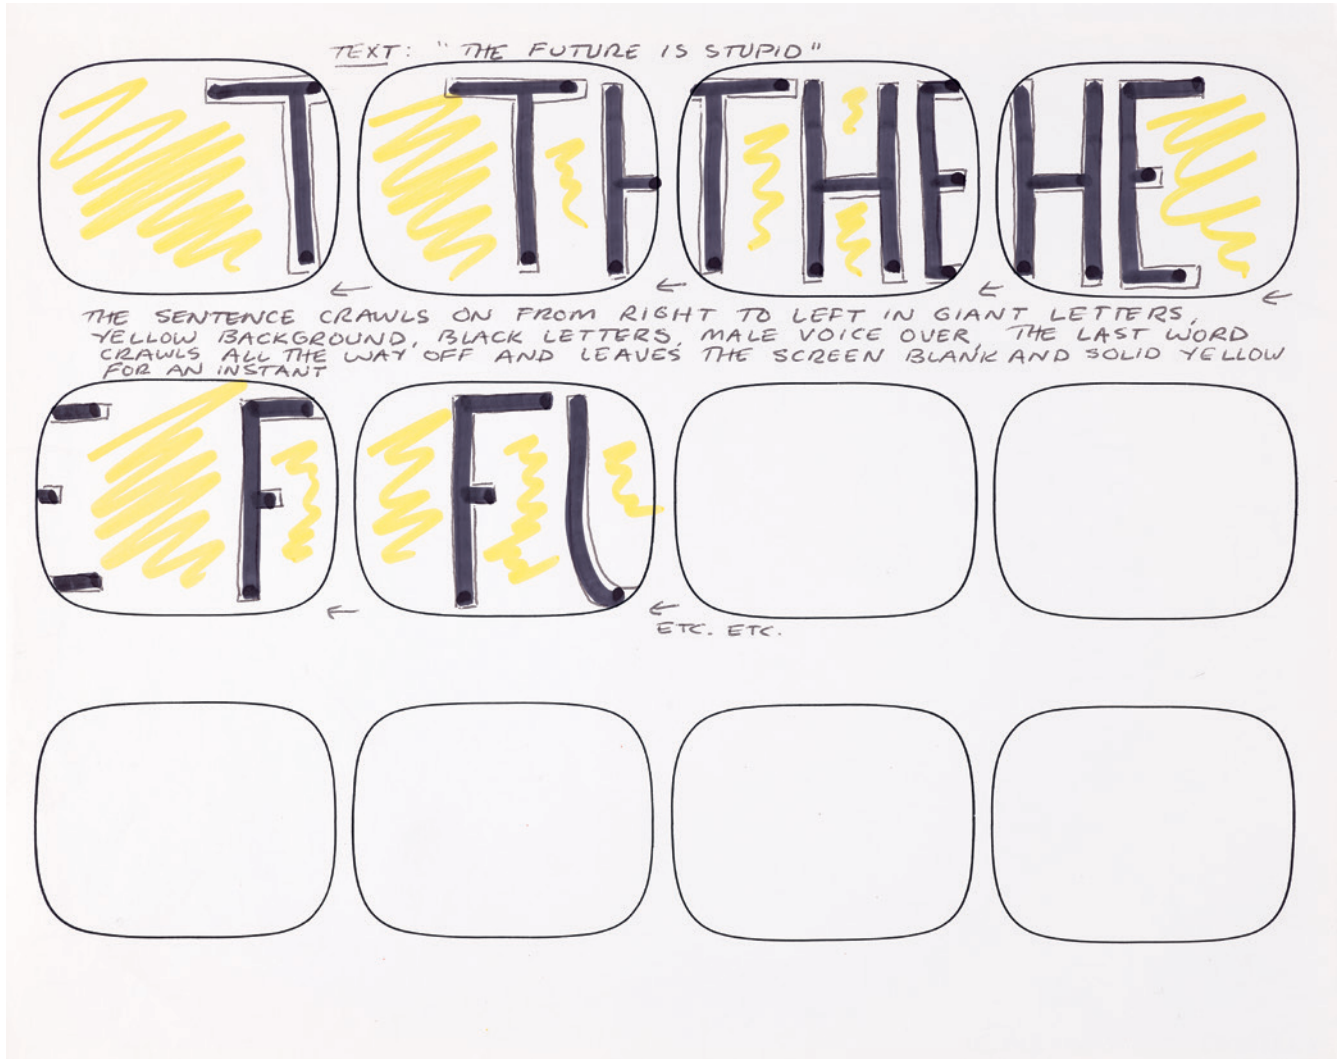 TEXT: "THE FUTURE IS STUPID"
T TH THE HE
THE SENTENCE CRAWLS ON FROM RIGHT TO LEFT IN GIANT LETTERS,
YELLOW BACKGROUND, BLACK LETTERS, MALE VOICE OVER, THE LAST WORD
CRAWLS ALL THE WAY OFF AND LEAVES THE SCREEN BLANK AND SOLID YELLOW
FOR AN INSTANT
E F FU
ETC. ETC.